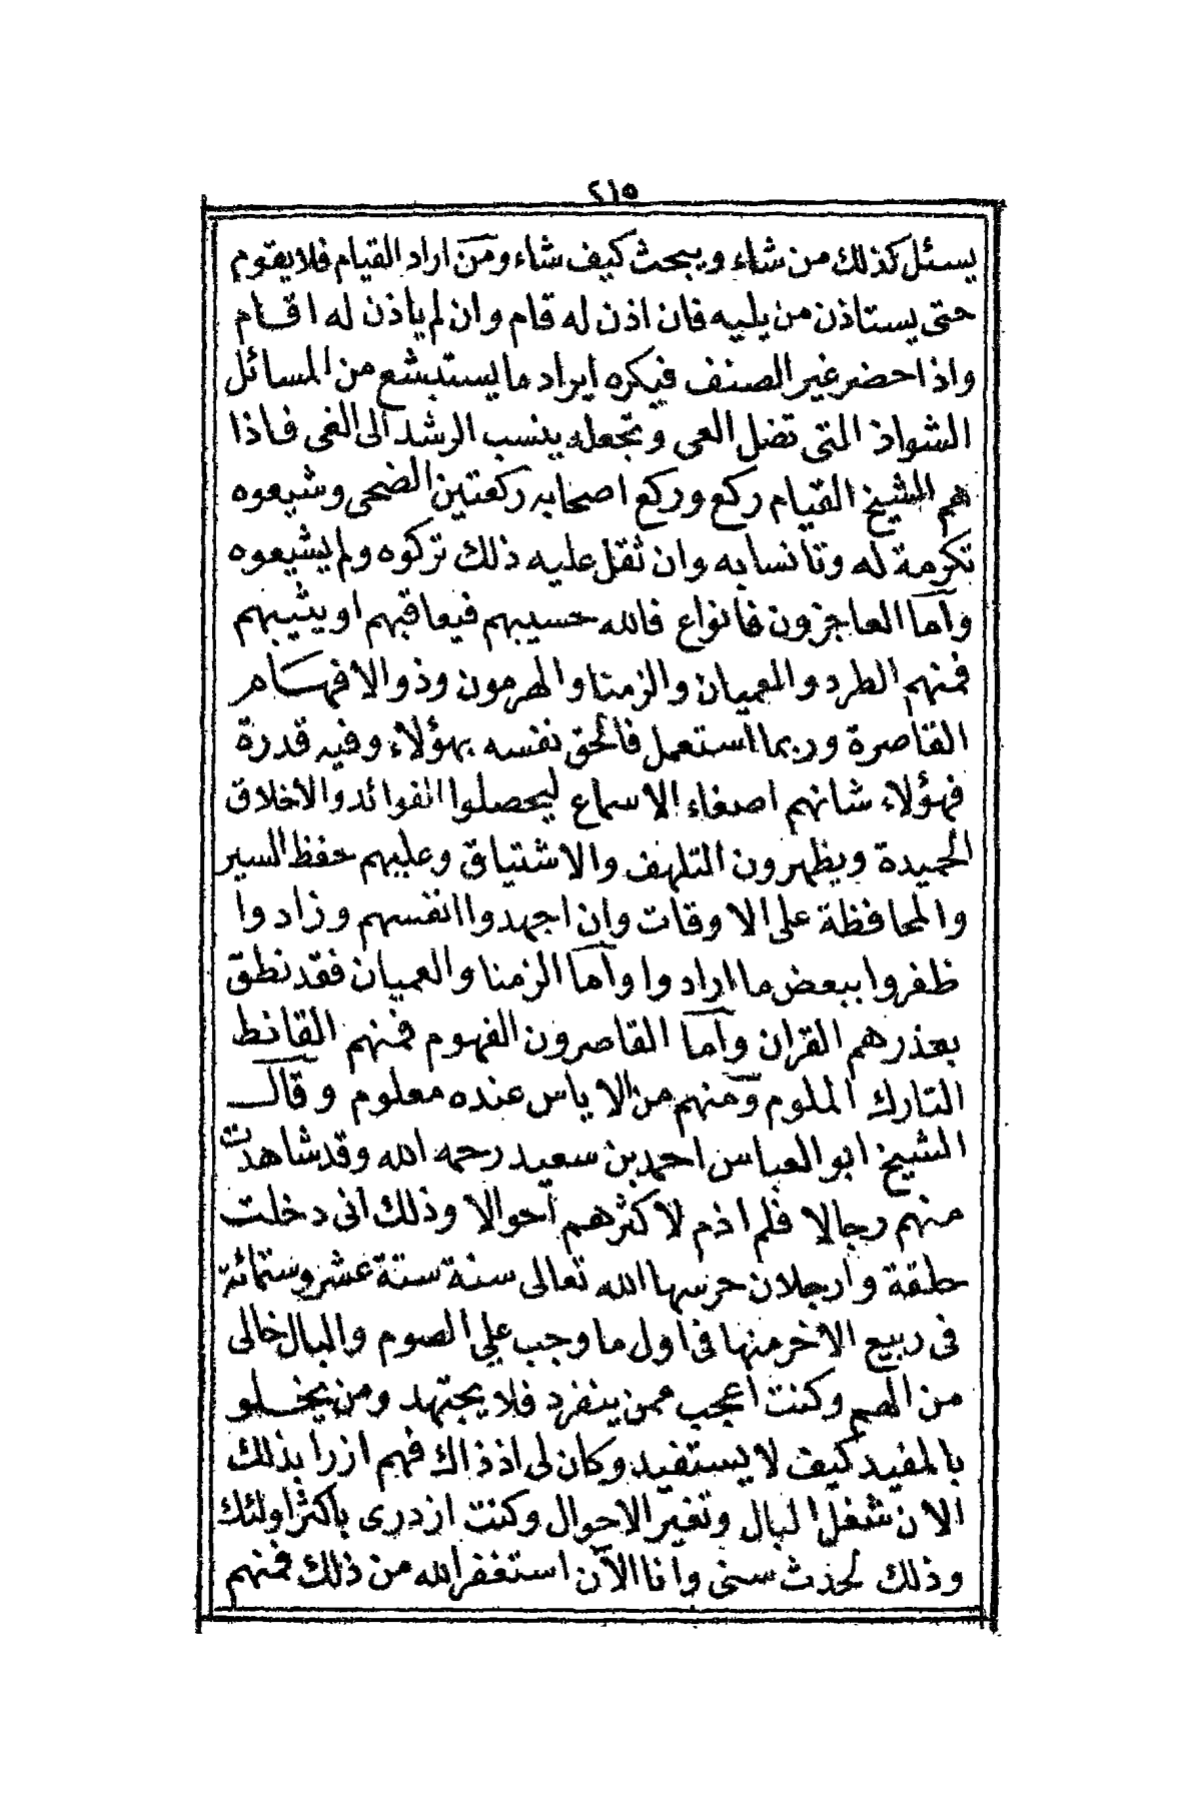 ٢١٥
يسئل كذلك من شاء ويبحث كيف شاء ومن اراد القيام فلا يقوم
حتى يستاذن من يليه فان اذن له قام وان لم ياذن له اقام
واذا حضر غير الصنف فيكره ايراد ما يستبشع من المسائل
الشواذ التى تضل العى وتجعله ينسب الرشد الى الغى فاذا
هم الشيخ القيام ركع وركع اصحابه ركعتين الضحى وشيعوه
تكرمة له وتانسا به وان ثقل عليه ذلك تركوه ولم يشيعوه
وأما العاجزون فانواع فالله حسيبهم فيعاقبهم او يثيبهم
فمنهم الطرد والعميان والزمنا والهرمون وذوالافهام
القاصرة وربما استعمل فالحق نفسه بهؤلاء وفيه قدرة
فهؤلاء شانهم اصغاء الاسماع ليحصلوا الفوائد والأخلاق
الحميدة ويظهرون التلهف والاشتياق وعليهم حفظ السير
والمحافظة على الاوقات وان اجهدوا انفسهم وزادوا
ظفروا ببعض ما ارادوا وأما الزمنا والعميان فقد نطق
بعذرهم القران وأما القاصرون الفهوم فمنهم القانط
التارك الملوم ومنهم من الاياس عنده معلوم وقال
الشيخ ابو العباس احمد بن سعيد رحمه الله وقد شاهدت
منهم رجالا فلم اذم لأكثرهم أحوالا وذلك انى دخلت
حلقة وأرجلان حرسها الله تعالى سنة ستة عشر وستمائة
فى ربيع الاخر منها فى أول ما وجب علي الصوم والبال خالى
من الهم وكنت أعجب ممن ينفرد فلا يجتهد ومن يخلو
بالمفيد كيف لا يستفيد وكان لى اذ ذاك فهم ازرا بذلك
الان شغل البال وتغير الاحوال وكنت ازدرى بأكثر اولئك
وذلك لحدث سنى وأنا الآن استغفر الله من ذلك فمنهم